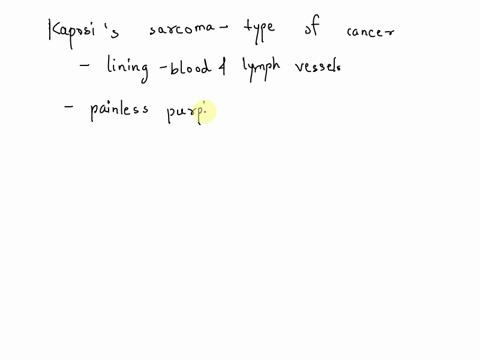 Kaposi's sarcoma - type of cancer
- lining - blood & lymph vessels
- painless purp